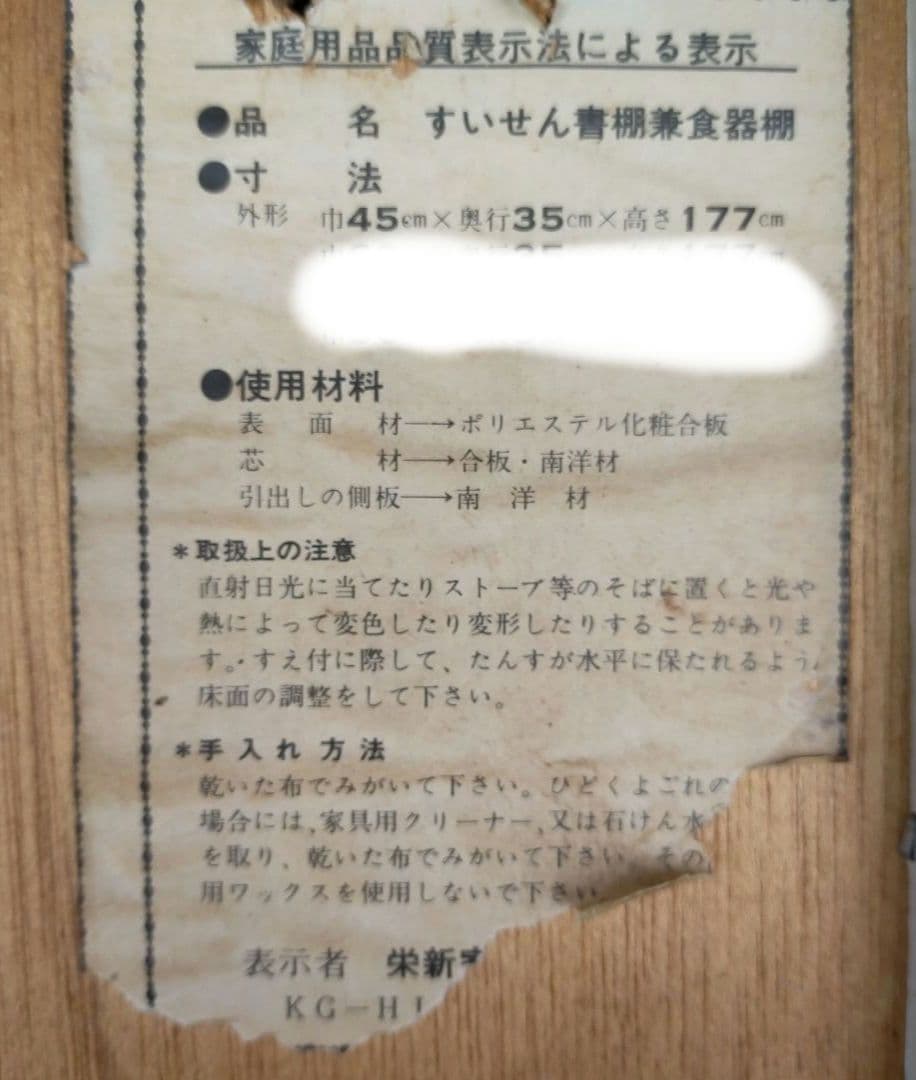 家庭用品品質表示法による表示
●品 名 すいせん書棚兼食器棚
●寸 法
外形 巾45cm×奥行35cm×高さ177cm
●使用材料
表面材─→ポリエステル化粧合板
芯 材─→合板・南洋材
引出しの側板─→南洋材
*取扱上の注意
直射日光に当てたりストーブ等のそばに置くと光や
熱によって変色したり変形したりすることがありま
す。・すえ付に際して、たんすが水平に保たれるよう
床面の調整をして下さい。
*手入れ方法
乾いた布でみがいて下さい。ひどくよごれの
場合には、家具用クリーナー、又は石けん水
を取り、乾いた布でみがいて下さい。その
用ワックスを使用しないで下さい
表示者 栄新
KG-H